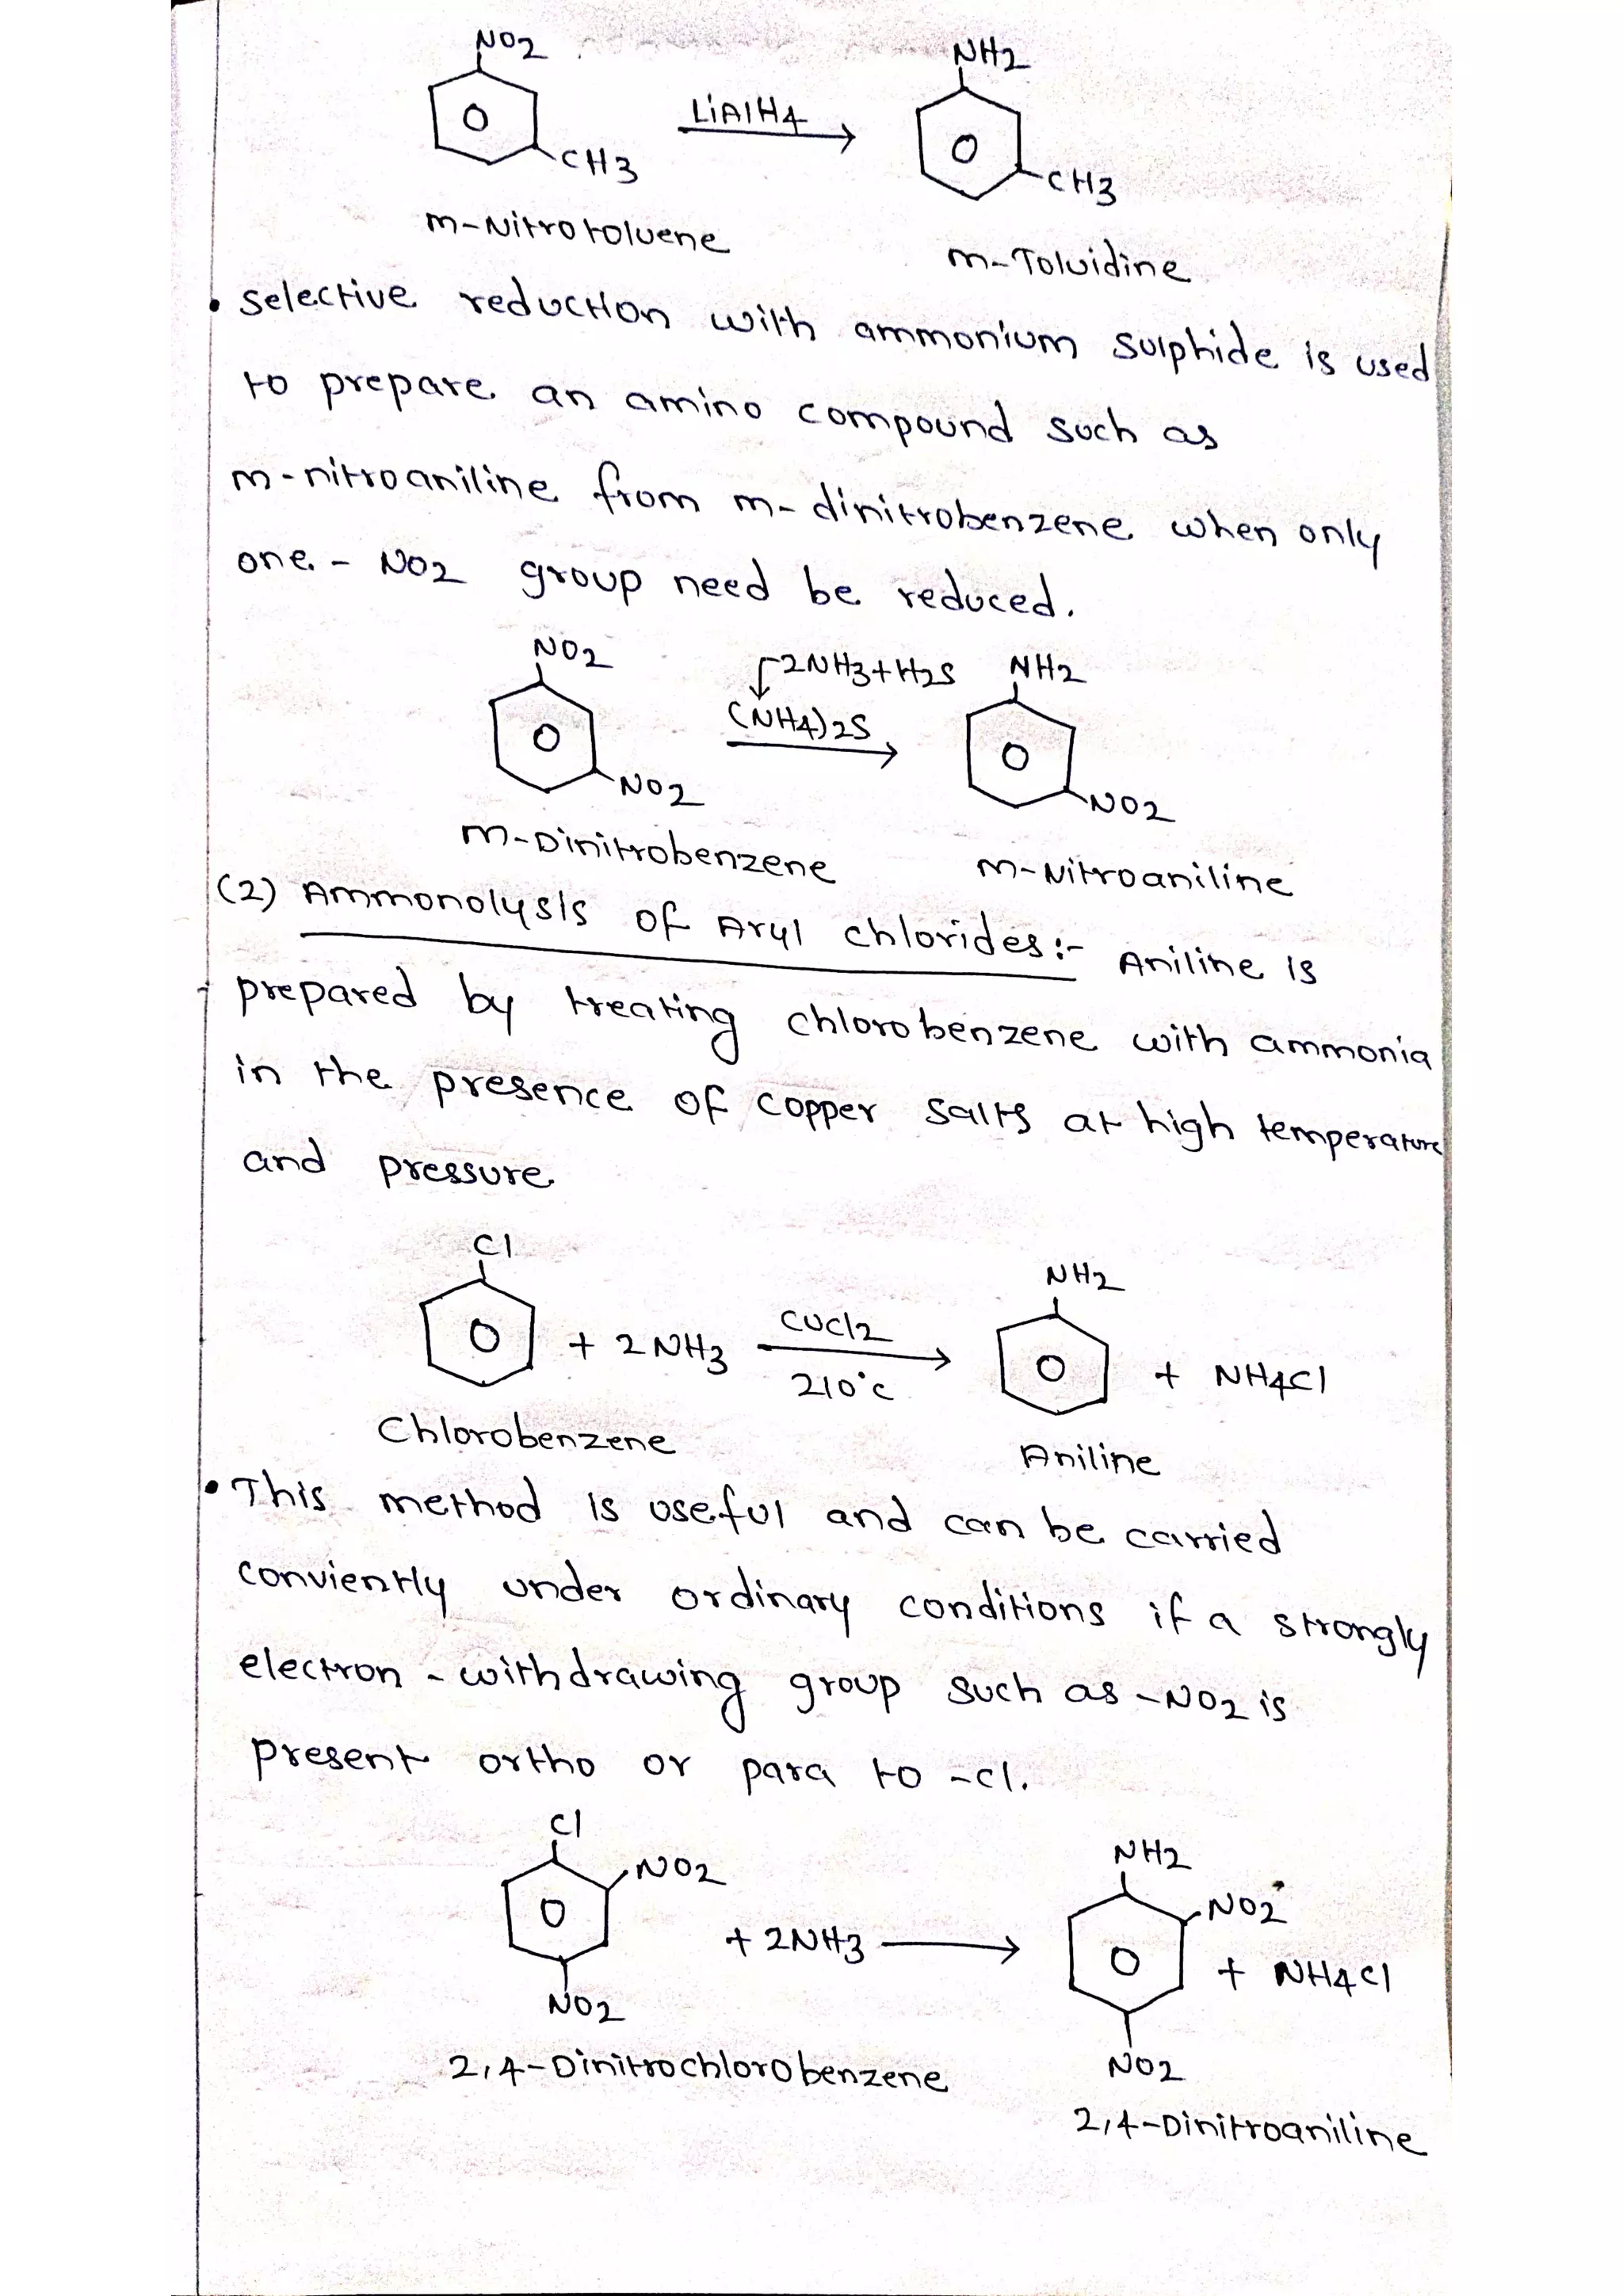 NO2 NH2
LiAlH4
CH3 CH3
m-Nitrotoluene m-Toluidine
• Selective reduction with ammonium sulphide is used
to prepare an amino compound such as
m-nitroaniline from m-dinitrobenzene when only
one - NO2 group need be reduced.
NO2 2NH3+H2S NH2
(NH4)2S
NO2 NO2
m-Dinitrobenzene m-Nitroaniline
(2) Ammonolysis of Aryl chlorides:- Aniline is
prepared by treating chlorobenzene with ammonia
in the presence of copper salts at high temperature
and pressure
Cl NH2
+ 2NH3 CuCl2 + NH4Cl
210°C
Chlorobenzene Aniline
• This method is useful and can be carried
conviently under ordinary conditions if a strongly
electron-withdrawing group such as -NO2 is
present ortho or para to -cl.
Cl NH2
NO2 NO2
+ 2NH3 + NH4Cl
NO2 NO2
2,4-Dinitrochlorobenzene
2,4-Dinitroaniline